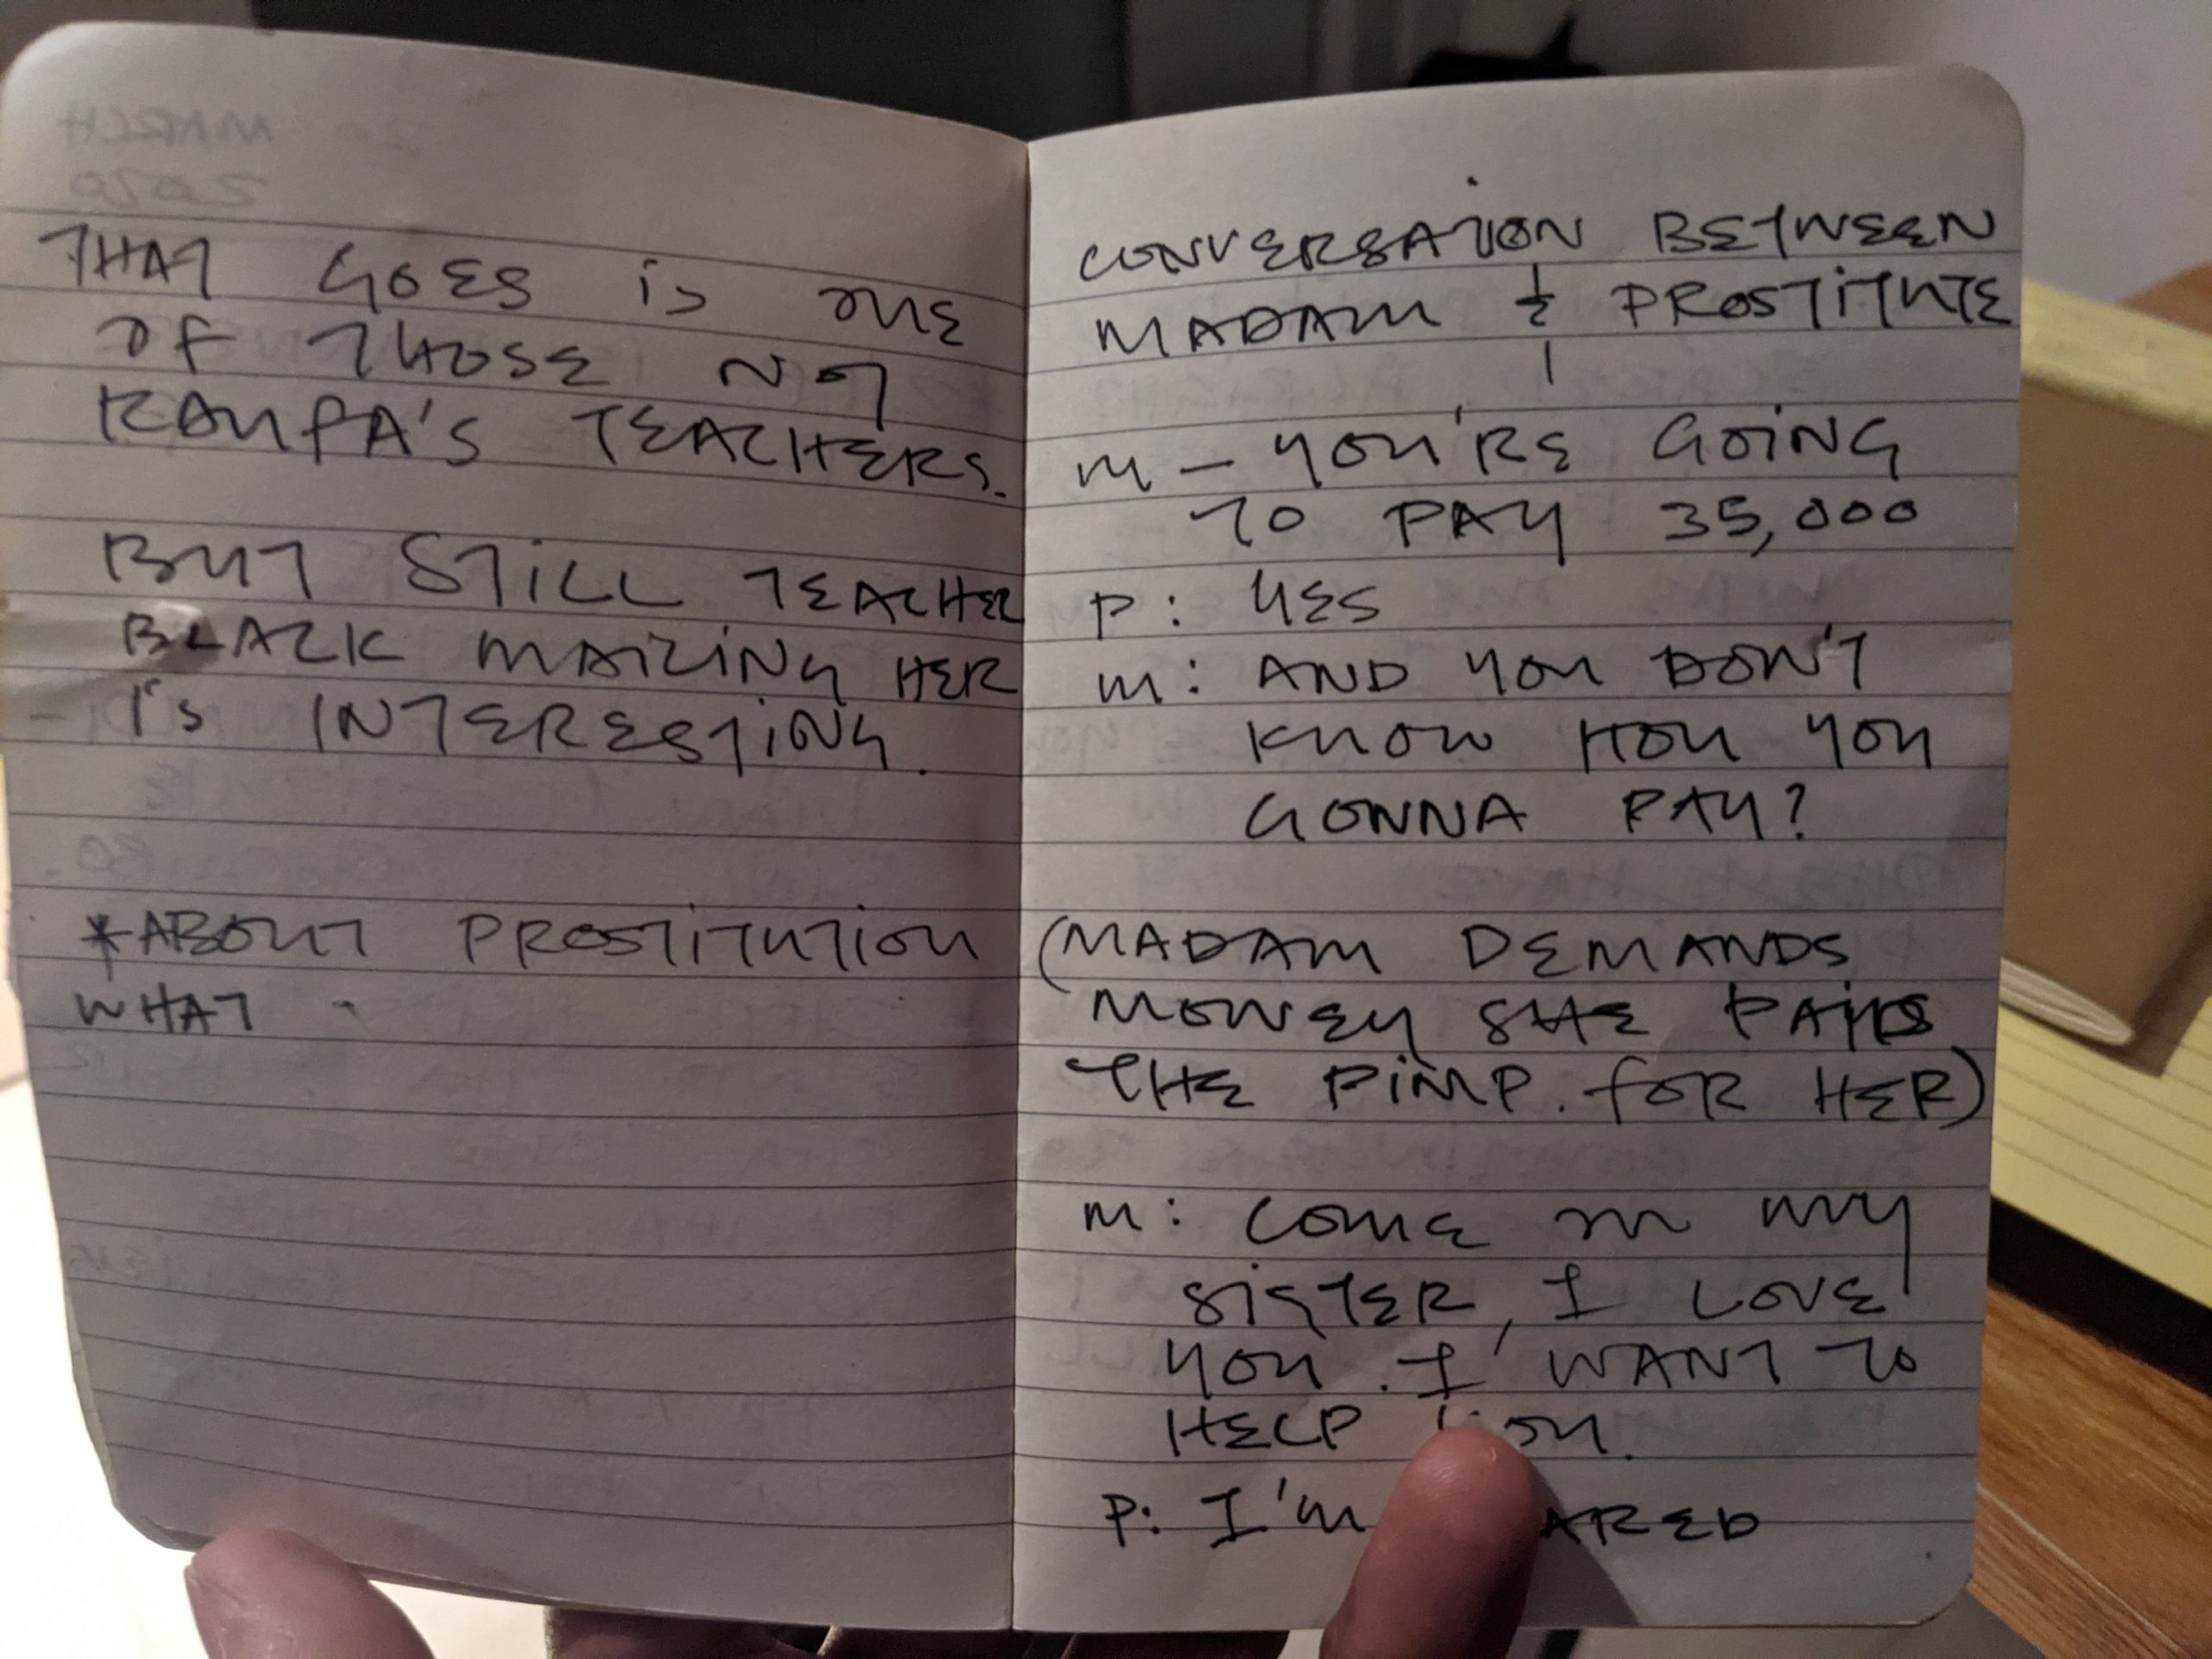 THAT GOES is ONE
OF THOSE NOT
KAMPA'S TEACHERS.
BUT STILL TEACHER
BLACK MAILING HER
- I's INTERESTING.
*ABOUT PROSTITUTION
WHAT -
CONVERSATION BETWEEN
MADAM & PROSTITUTE
1
M - YOU'RE GOING
TO PAY 35,000
P: YES
M: AND YOU DON'T
KNOW HOW YOU
GONNA PAY?
(MADAM DEMANDS
MONEY SHE PAYS
THE PIMP. FOR HER)
M: COME IN MY
SISTER, I LOVE
YOU. I WANT TO
HELP YOU.
P: I'M